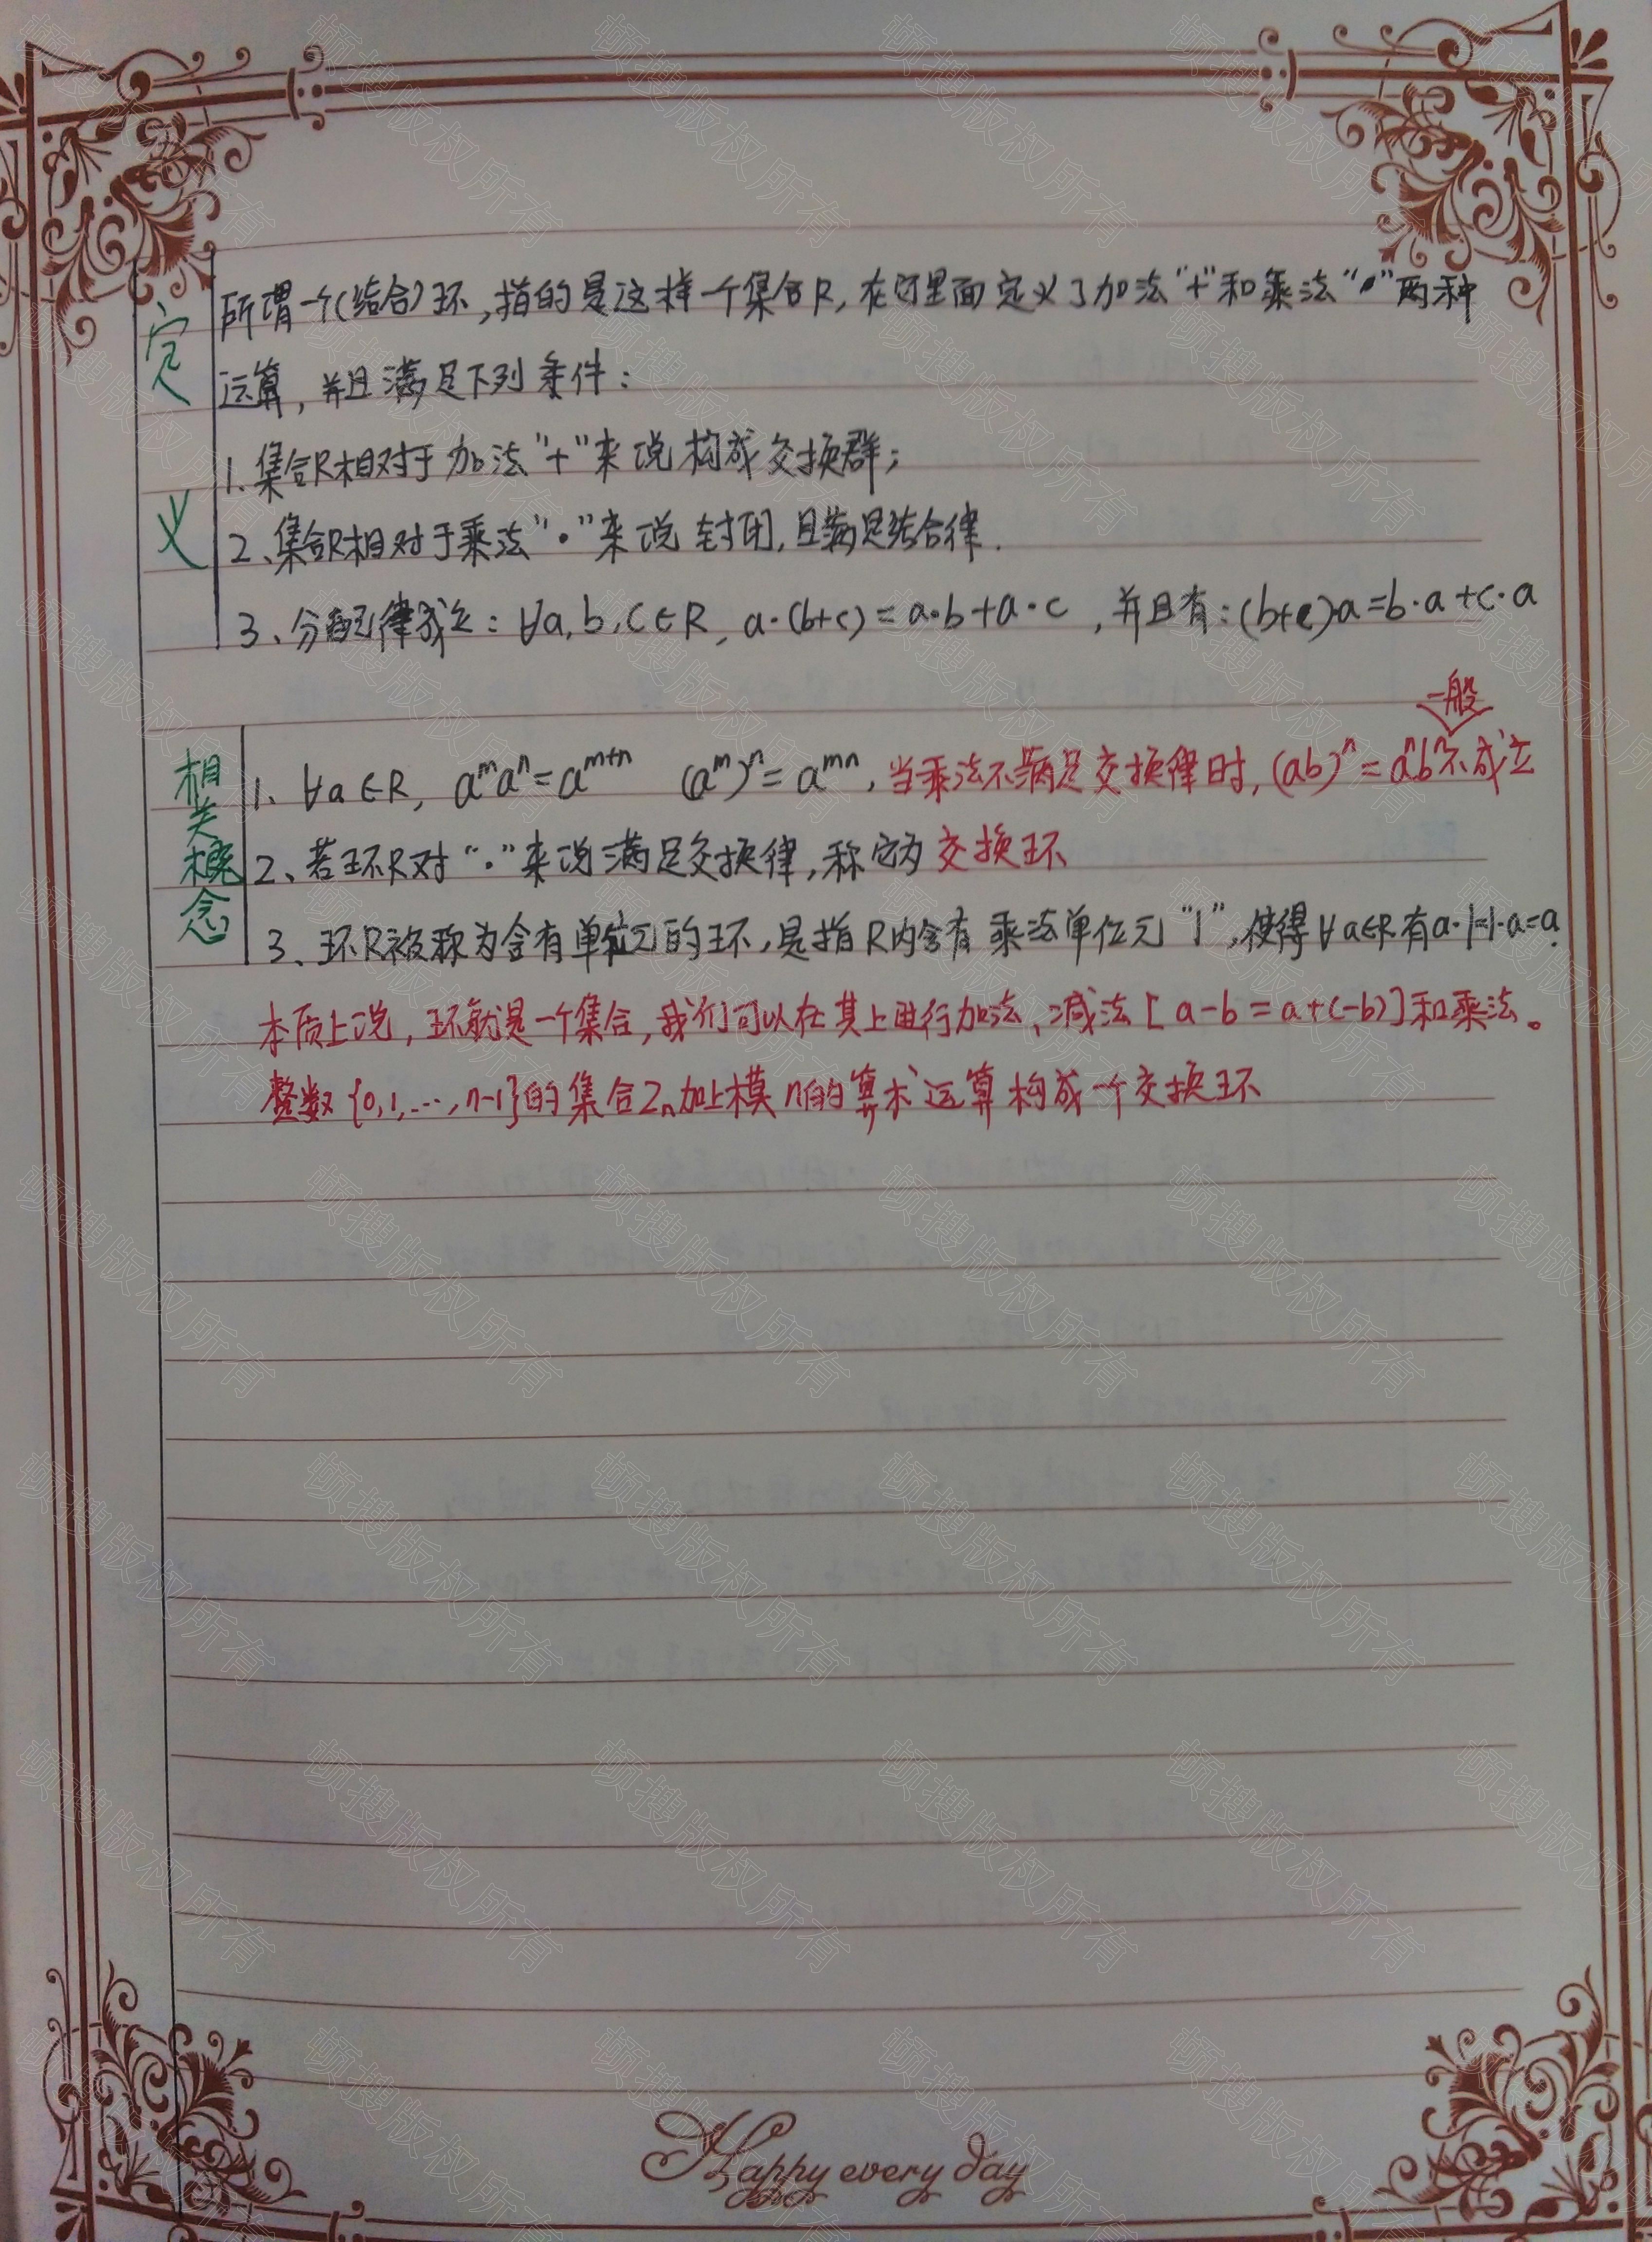 定义
所谓一个(结合)环,指的是这样一个集合R,在它里面定义了加法“+”和乘法“·”两种
运算,并且满足下列条件:
1.集合R相对于加法“+”来说构成交换群;
2、集合R相对于乘法“·”来说封闭,且满足结合律.
3、分配律成立:∀a,b,c∈R, a·(b+c)=a·b+a·c ,并且有:(b+c)a=b·a+c·a
相关概念
一般
1、∀a∈R, aᵐaⁿ=aᵐ⁺ⁿ (aᵐ)ⁿ=aᵐⁿ,当乘法不满足交换律时,(ab)ⁿ=aⁿbⁿ不成立
2、若环R对“·”来说满足交换律,称它为交换环
3、环R被称为含有单位元的环,是指R内含有乘法单位元“1”,使得∀a∈R.有a·1=1·a=a.
本质上说,环就是一个集合,我们可以在其上进行加法、减法[a-b=a+(-b)]和乘法。
整数{0,1,…,n-1}的集合Zₙ加上模n的算术运算构成一个交换环
Happy every day
顿搜版权所有